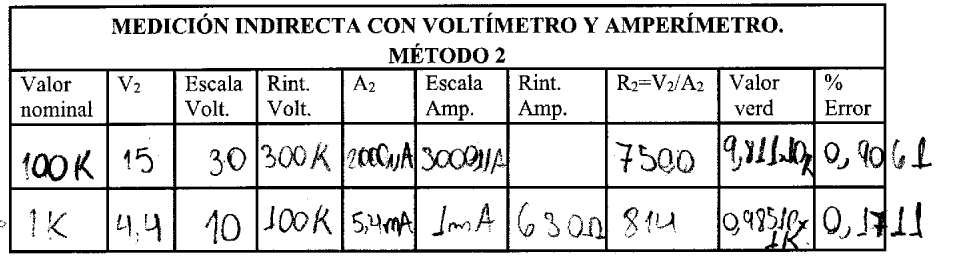 MEDICIÓN INDIRECTA CON VOLTÍMETRO Y AMPERÍMETRO.
MÉTODO 2
Valor nominal V2 Escala Volt. Rint. Volt. A2 Escala Amp. Rint. Amp. R2=V2/A2 Valor verd % Error
100K 15 30 300K 2000µA 3000µA 7500 0,9061
1K 4.4 10 100K 5,4mA 1mA 630Ω 814 1K 0,1711